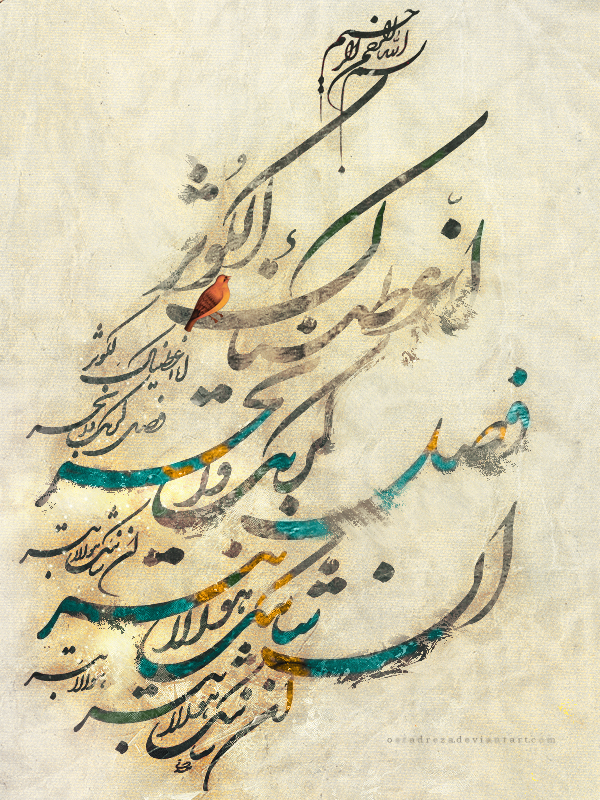 بسم الله الرحمن الرحیم
انا اعطیناک الکوثر
فصل لربک وانحر
ان شانئک هو الابتر
انا اعطیناک الکوثر
فصل لربک وانحر
ان شانئک هو الابتر
هو الابتر
ان شانئک هو الابتر
ostadreza.deviantart.com